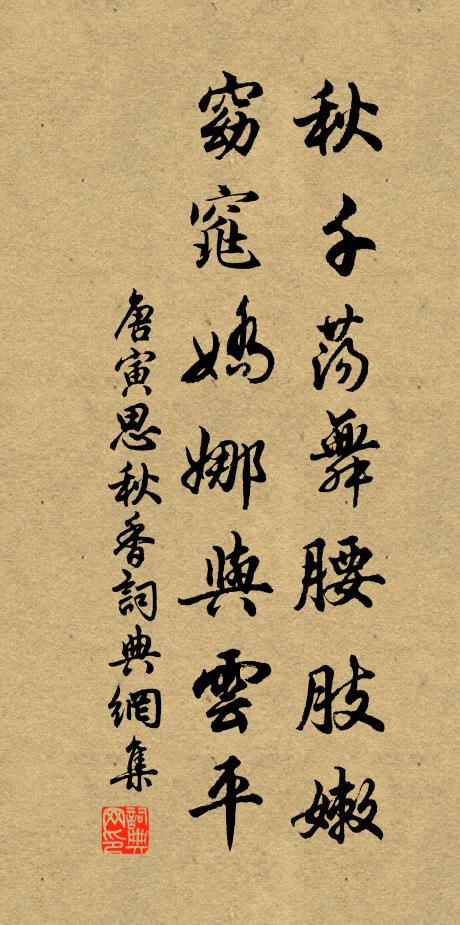 秋千荡舞腰肢嫩
窈窕娇娜與雲平
唐寅思秋香詞典網集
詞典网印